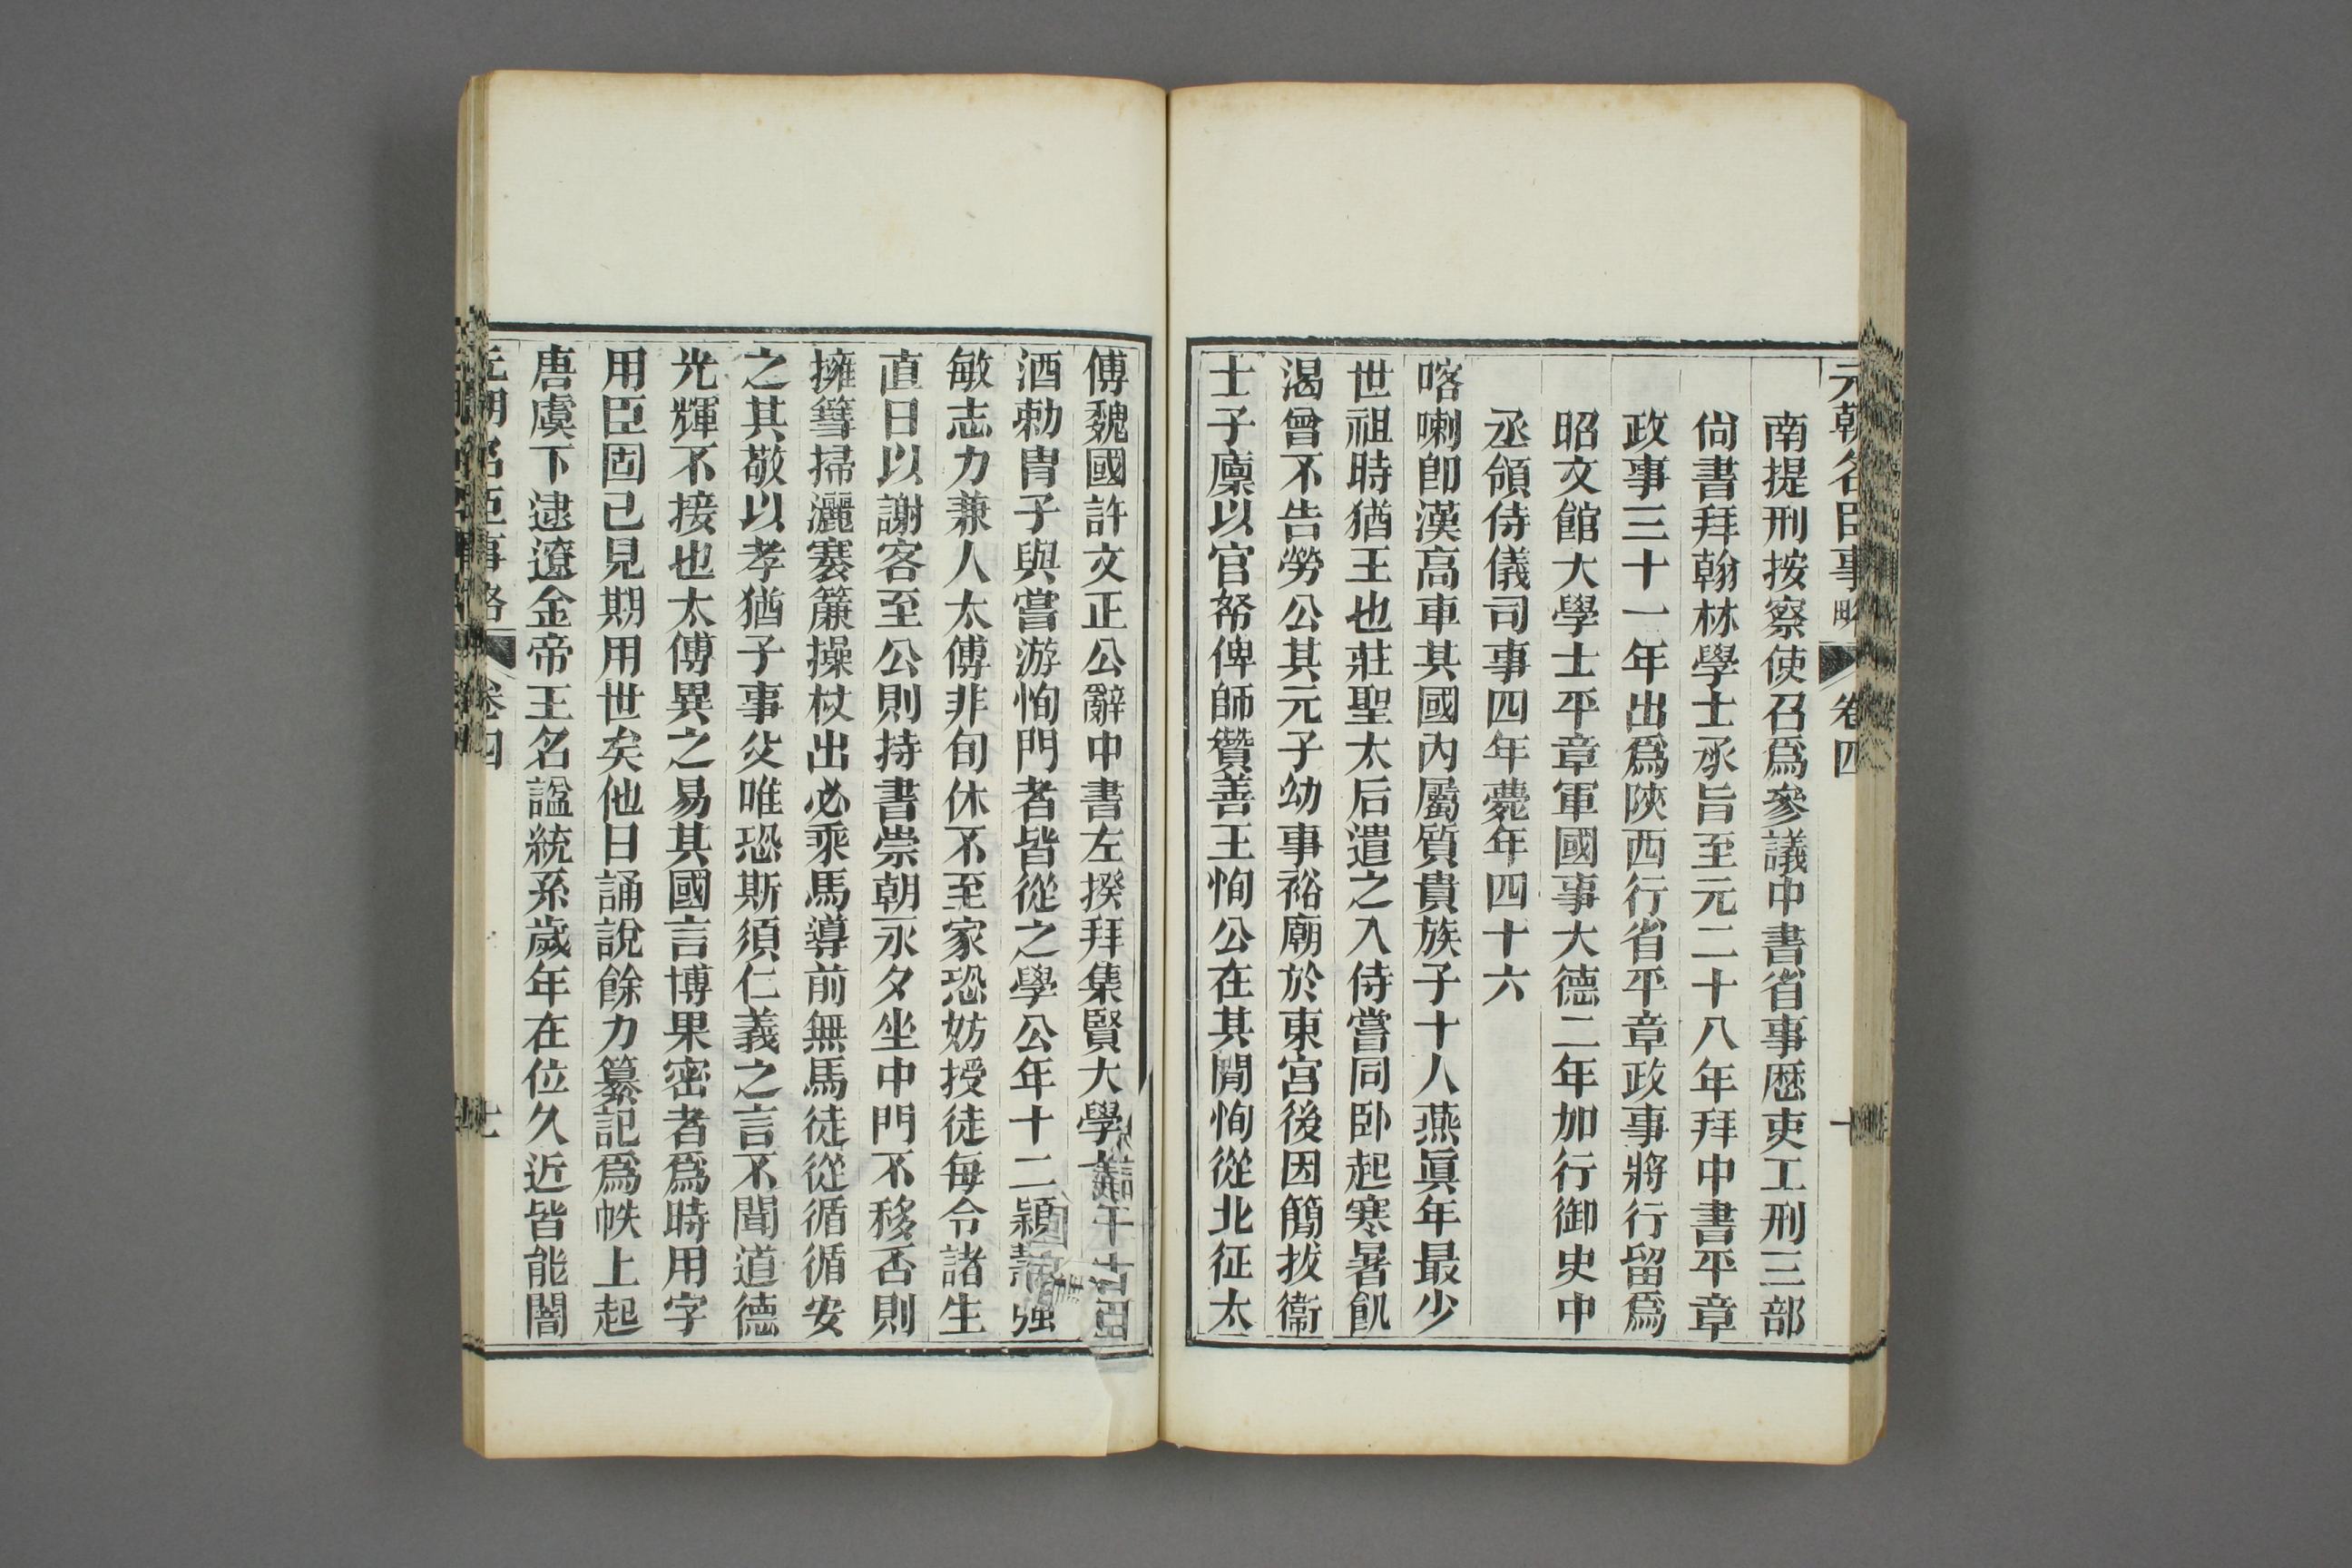 元朝名臣事略 卷四 十
南提刑按察使召爲參議中書省事歷吏工刑三部
尙書拜翰林學士承旨至元二十八年拜中書平章
政事三十一年出爲陝西行省平章政事將行留爲
昭文館大學士平章軍國事大德二年加行御史中
丞領侍儀司事四年薨年四十六
喀喇卽漢高車其國內屬質貴族子十人燕眞年最少
世祖時猶王也莊聖太后遣之入侍嘗同卧起寒暑飢
渴曾不告勞公其元子幼事裕廟於東宮後因簡拔衞
士子廩以官帑俾師贊善王恂公在其閒恂從北征太
傅魏國許文正公辭中書左揆拜集賢大學
酒勅冑子與嘗游恂門者皆從之學公年十二穎 強
敏志力兼人太傅非旬休不至家恐妨授徒每令諸生
直日以謝客至公則持書崇朝永夕坐中門不移否則
擁篲掃灑褰簾操杖出必乘馬導前無馬徒從循循安
之其敬以孝猶子事父唯恐斯須仁義之言不聞道德
光輝不接也太傅異之易其國言博果密者爲時用字
用臣固已見期用世矣他日誦說餘力纂記爲帙上起
唐虞下逮遼金帝王名謚統系歲年在位久近皆能闇
元朝名臣事略 卷四